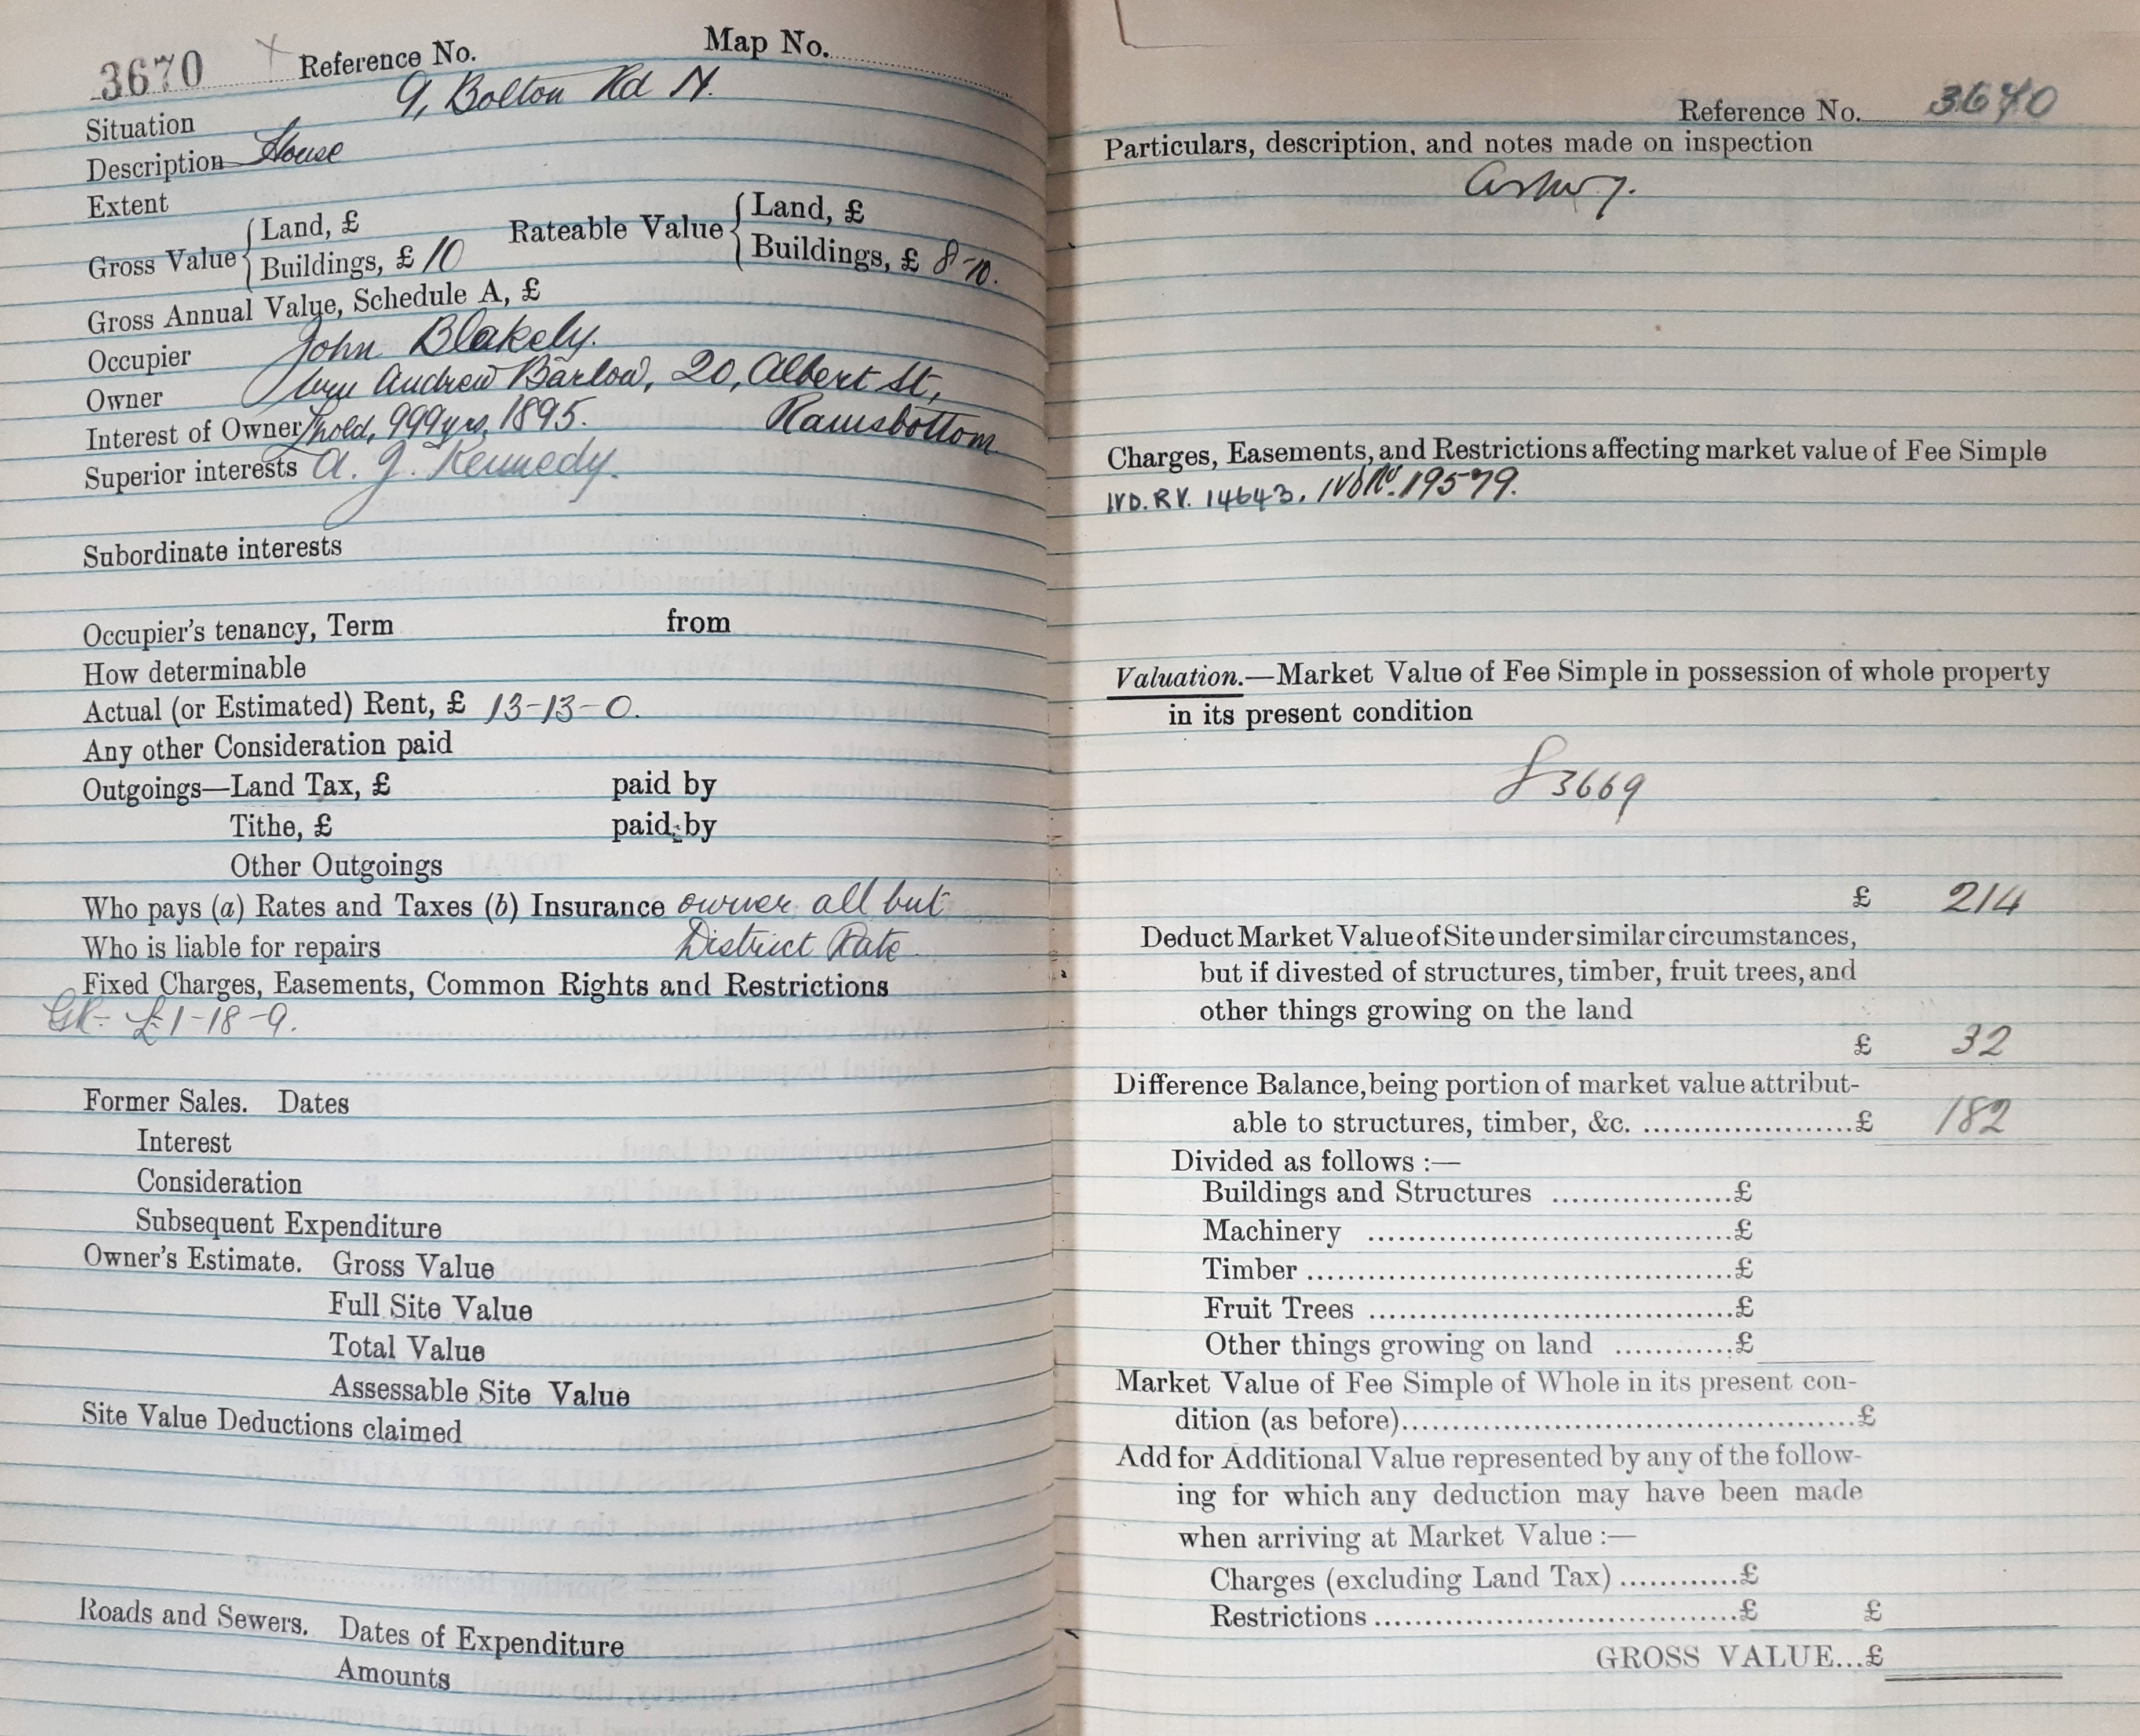 3670 Reference No. Map No.
Situation 9, Bolton Rd N.
Description House
Extent
Gross Value { Land, £ Rateable Value { Land, £
Buildings, £ 10 Buildings, £ 8-10.
Gross Annual Value, Schedule A, £
Occupier John Blakely.
Owner Wm Andrew Barlow, 20, Albert St,
Ramsbottom
Interest of Owner L'hold, 999 yrs, 1895.
Superior interests A. J. Kennedy.
Subordinate interests
Occupier's tenancy, Term from
How determinable
Actual (or Estimated) Rent, £ 13-13-0.
Any other Consideration paid
Outgoings—Land Tax, £ paid by
Tithe, £ paid by
Other Outgoings
Who pays (a) Rates and Taxes (b) Insurance owner all but
Who is liable for repairs District Rate
Fixed Charges, Easements, Common Rights and Restrictions
GR- £1-18-9.
Former Sales. Dates
Interest
Consideration
Subsequent Expenditure
Owner's Estimate. Gross Value
Full Site Value
Total Value
Assessable Site Value
Site Value Deductions claimed
Roads and Sewers. Dates of Expenditure
Amounts
Reference No. 3670
Particulars, description, and notes made on inspection
Charges, Easements, and Restrictions affecting market value of Fee Simple
IVD. RV. 14643. IVD RV. 19579.
Valuation.—Market Value of Fee Simple in possession of whole property
in its present condition
3669
£ 214
Deduct Market Value of Site under similar circumstances,
but if divested of structures, timber, fruit trees, and
other things growing on the land
£ 32
Difference Balance, being portion of market value attribut-
able to structures, timber, &c. ....................£ 182
Divided as follows :—
Buildings and Structures ..................£
Machinery ....................................£
Timber ..........................................£
Fruit Trees ....................................£
Other things growing on land ............£
Market Value of Fee Simple of Whole in its present con-
dition (as before)..............................................£
Add for Additional Value represented by any of the follow-
ing for which any deduction may have been made
when arriving at Market Value :—
Charges (excluding Land Tax) ............£
Restrictions ....................................£ £
GROSS VALUE...£